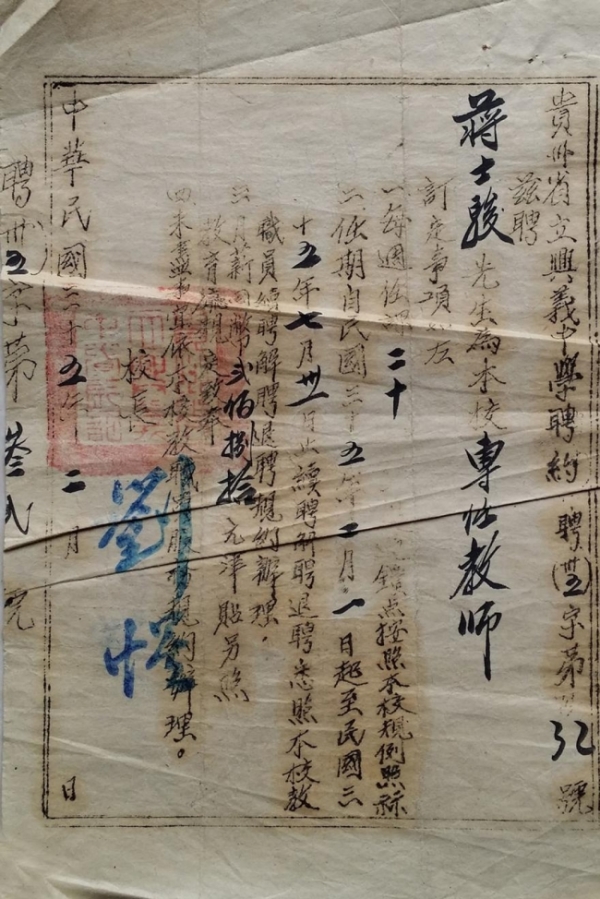 貴州省立興義中學聘約 聘(卅五)字第32號
茲聘
蔣士駿先生為本校專任教師
訂定事項如左
一每週任課二十 鐘點按照本校規例照薪
二任期自民國三十五年二月一日起至民國三
十五年七月卅一日止續聘解聘退聘悉照本校教
職員續聘解聘退聘規約辦理。
三月薪國幣貳佰捌拾元津貼另照
教育廳規定致奉
四未盡事宜依本校教職員服務規約辦理。
校長 劉
中華民國三十五年二月 日
聘卅五字第叁貳號